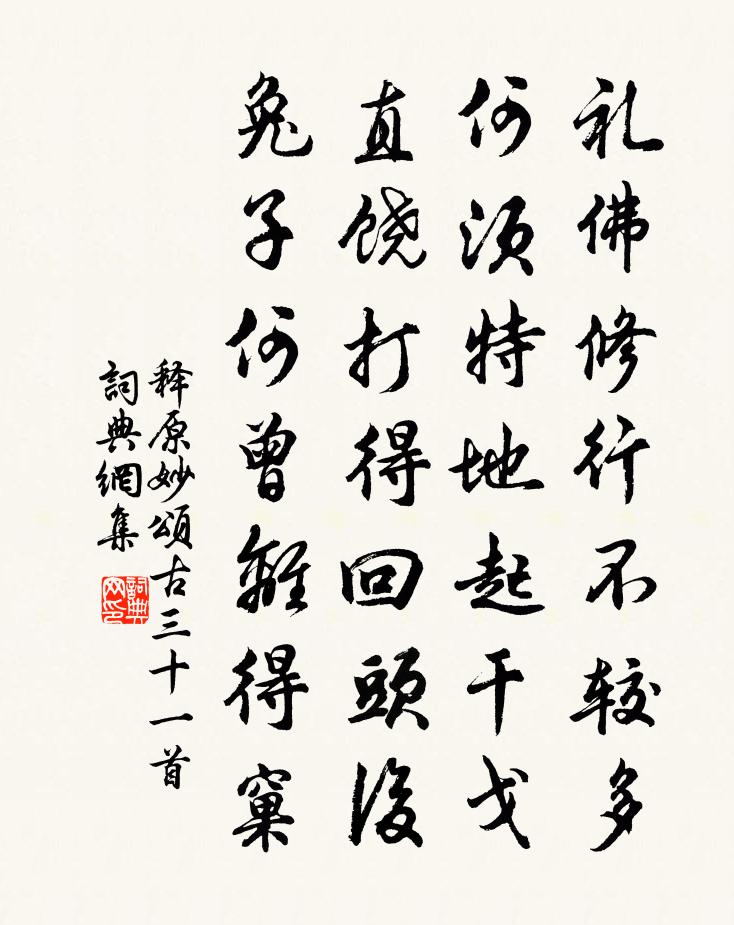 礼佛修行不较多
何须特地起干戈
直饶打得回頭後
兔子何曾離得窠
释原妙頌古三十一首
詞典網集
詞典
网印